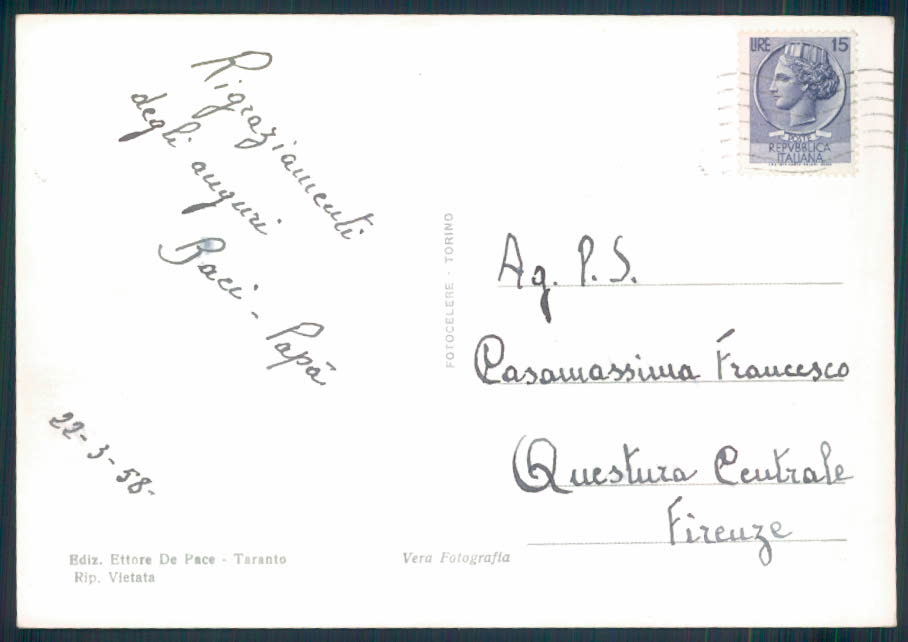 Rigraziamenti
degli auguri
Baci - Papà
22-3-58-
Ediz. Ettore De Pace - Taranto
Rip. Vietata
Vera Fotografia
FOTOCELERE - TORINO
LIRE 15
POSTE
REPVBBLICA
ITALIANA
Ag. P. S.
Casamassima Francesco
Questura Centrale
Firenze